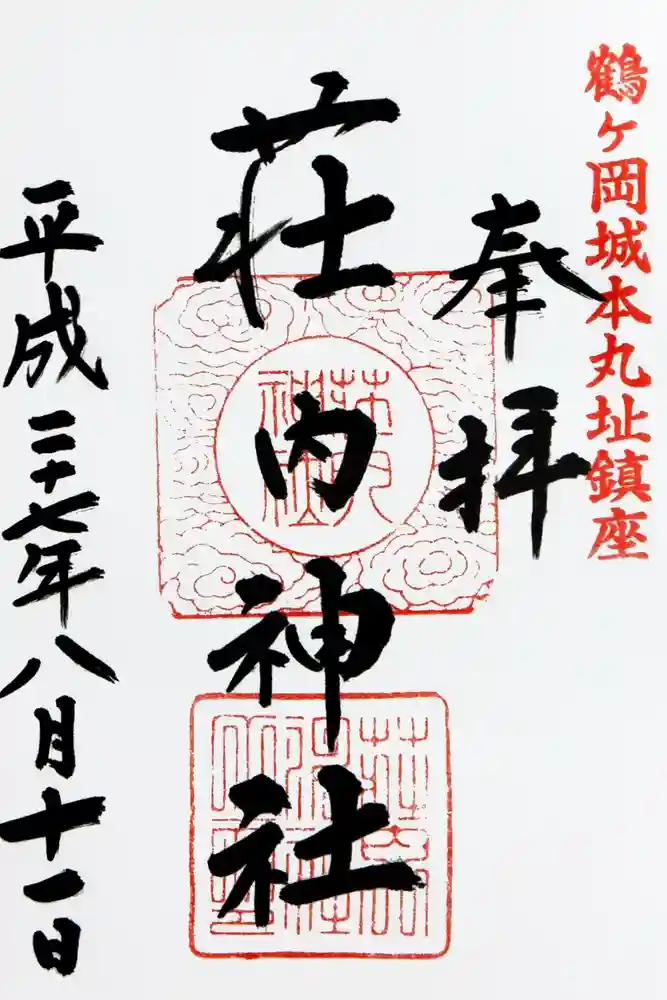 鶴ヶ岡城本丸址鎮座
奉拝
荘内神社
荘内神社
平成二十七年八月十一日